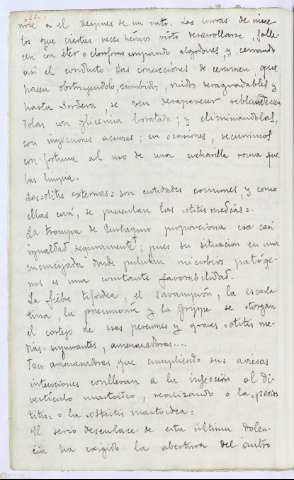 a él despues de un rato. Las larvas de insec-
tos que ciertas veces hemos visto desarrollarse, falle-
cen con éter o cloroformo empapando algodones y cerrando
así el conducto. Las concreciones de cerumen que
hacen obstruyéndolo, zumbido, ruidos desagradables y
hasta sordera, se ven desaparecer reblandecién-
dolas con glicerina boratada; y eliminándolas,
con inyecciones acuosas; en ocasiones, recurrimos
con fortuna al uso de una cucharilla roma que
las limpia.
Las otitis externas son entidades comunes y como
ellas casi, se presentan las otitis medias.
La trompa de Eustaquio proporciona esa casi
igualdad, seguramente, pues su situacion en una
encrucijada donde pululan microbios patóge-
nos es una constante favorabilidad.
La fiebre tifoidea, el sarampión, la escarla-
tina, la pneumonía y la grippe se otorgan
el cortejo de esas peronas y graves otitis me-
dias supurantes, amenazadoras...
Tan amenazadoras que cumpliendo sus aviesas
intenciones conllevan a la infección al di-
vertículo mastoideo, realizando o la perios-
titis o la osteitis mastoidea.
El serio desenlace de esta última dolen-
cia ha exigido la abertura del antro